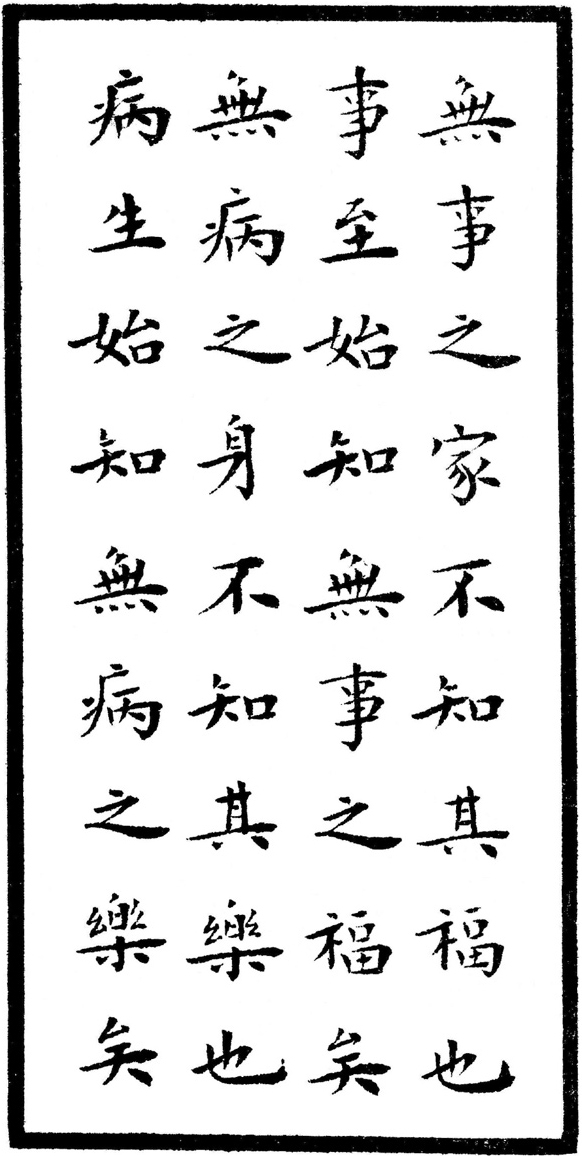 無事之家不知其福也
事至始知無事之福矣
無病之身不知其樂也
病生始知無病之樂矣